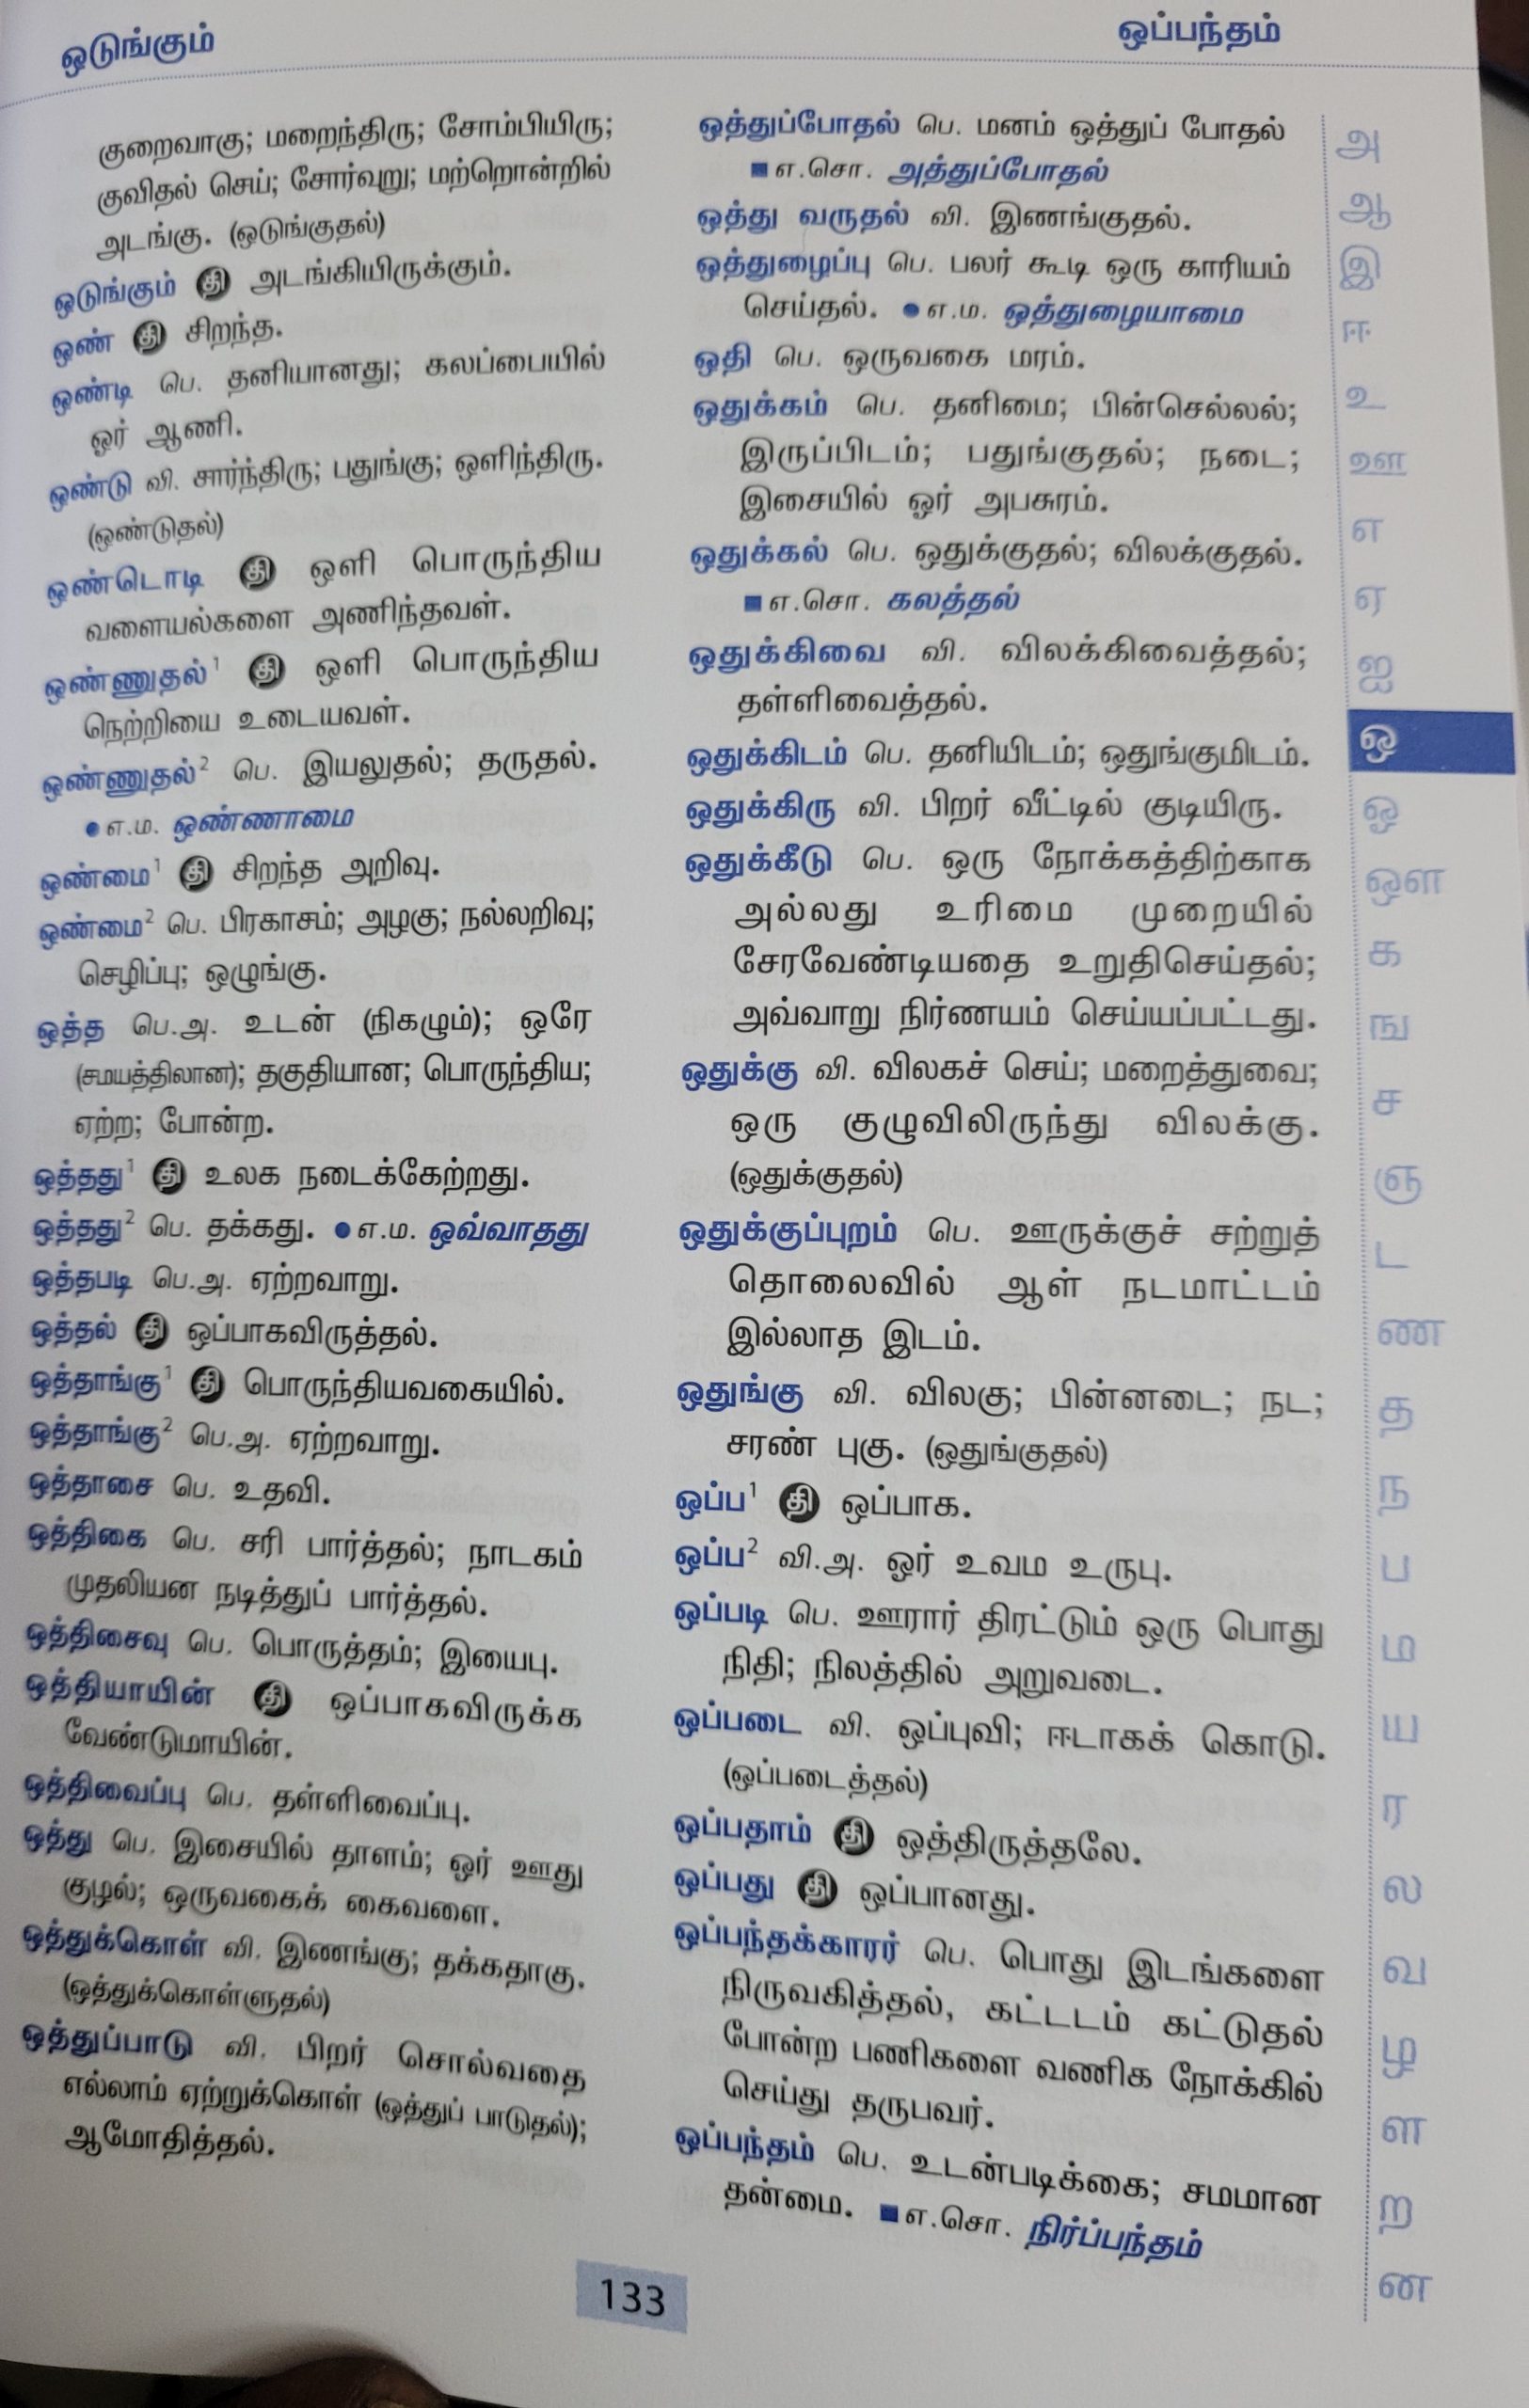 ஒடுங்கும்
ஒப்பந்தம்
குறைவாகு; மறைந்திரு; சோம்பியிரு;
குவிதல் செய்; சோர்வுறு; மற்றொன்றில்
அடங்கு. (ஒடுங்குதல்)
ஒடுங்கும் தி அடங்கியிருக்கும்.
ஒண் தி சிறந்த.
ஒண்டி பெ. தனியானது; கலப்பையில்
ஓர் ஆணி.
ஒண்டு வி. சார்ந்திரு; பதுங்கு; ஒளிந்திரு.
(ஒண்டுதல்)
ஒண்டொடி தி ஒளி பொருந்திய
வளையல்களை அணிந்தவள்.
ஒண்ணுதல்1 தி ஒளி பொருந்திய
நெற்றியை உடையவள்.
ஒண்ணுதல்2 பெ. இயலுதல்; தருதல்.
● எ.ம. ஒண்ணாமை
ஒண்மை1 தி சிறந்த அறிவு.
ஒண்மை2 பெ. பிரகாசம்; அழகு; நல்லறிவு;
செழிப்பு; ஒழுங்கு.
ஒத்த பெ.அ. உடன் (நிகழும்); ஒரே
(சமயத்திலான); தகுதியான; பொருந்திய;
ஏற்ற; போன்ற.
ஒத்தது1 தி உலக நடைக்கேற்றது.
ஒத்தது2 பெ. தக்கது. ● எ.ம. ஒவ்வாதது
ஒத்தபடி பெ.அ. ஏற்றவாறு.
ஒத்தல் தி ஒப்பாகவிருத்தல்.
ஒத்தாங்கு1 தி பொருந்தியவகையில்.
ஒத்தாங்கு2 பெ.அ. ஏற்றவாறு.
ஒத்தாசை பெ. உதவி.
ஒத்திகை பெ. சரி பார்த்தல்; நாடகம்
முதலியன நடித்துப் பார்த்தல்.
ஒத்திசைவு பெ. பொருத்தம்; இயைபு.
ஒத்தியாயின் தி ஒப்பாகவிருக்க
வேண்டுமாயின்.
ஒத்திவைப்பு பெ. தள்ளிவைப்பு.
ஒத்து பெ. இசையில் தாளம்; ஓர் ஊது
குழல்; ஒருவகைக் கைவளை.
ஒத்துக்கொள் வி. இணங்கு; தக்கதாகு.
(ஒத்துக்கொள்ளுதல்)
ஒத்துப்பாடு வி. பிறர் சொல்வதை
எல்லாம் ஏற்றுக்கொள் (ஒத்துப் பாடுதல்);
ஆமோதித்தல்.
ஒத்துப்போதல் பெ. மனம் ஒத்துப் போதல்
■ எ.சொ. அத்துப்போதல்
ஒத்து வருதல் வி. இணங்குதல்.
ஒத்துழைப்பு பெ. பலர் கூடி ஒரு காரியம்
செய்தல். ● எ.ம. ஒத்துழையாமை
ஒதி பெ. ஒருவகை மரம்.
ஒதுக்கம் பெ. தனிமை; பின்செல்லல்;
இருப்பிடம்; பதுங்குதல்; நடை;
இசையில் ஓர் அபசுரம்.
ஒதுக்கல் பெ. ஒதுக்குதல்; விலக்குதல்.
■ எ.சொ. கலத்தல்
ஒதுக்கிவை வி. விலக்கிவைத்தல்;
தள்ளிவைத்தல்.
ஒதுக்கிடம் பெ. தனியிடம்; ஒதுங்குமிடம்.
ஒதுக்கிரு வி. பிறர் வீட்டில் குடியிரு.
ஒதுக்கீடு பெ. ஒரு நோக்கத்திற்காக
அல்லது உரிமை முறையில்
சேரவேண்டியதை உறுதிசெய்தல்;
அவ்வாறு நிர்ணயம் செய்யப்பட்டது.
ஒதுக்கு வி. விலகச் செய்; மறைத்துவை;
ஒரு குழுவிலிருந்து விலக்கு.
(ஒதுக்குதல்)
ஒதுக்குப்புறம் பெ. ஊருக்குச் சற்றுத்
தொலைவில் ஆள் நடமாட்டம்
இல்லாத இடம்.
ஒதுங்கு வி. விலகு; பின்னடை; நட;
சரண் புகு. (ஒதுங்குதல்)
ஒப்ப1 தி ஒப்பாக.
ஒப்ப2 வி.அ. ஓர் உவம உருபு.
ஒப்படி பெ. ஊரார் திரட்டும் ஒரு பொது
நிதி; நிலத்தில் அறுவடை.
ஒப்படை வி. ஒப்புவி; ஈடாகக் கொடு.
(ஒப்படைத்தல்)
ஒப்பதாம் தி ஒத்திருத்தலே.
ஒப்பது தி ஒப்பானது.
ஒப்பந்தக்காரர் பெ. பொது இடங்களை
நிருவகித்தல், கட்டடம் கட்டுதல்
போன்ற பணிகளை வணிக நோக்கில்
செய்து தருபவர்.
ஒப்பந்தம் பெ. உடன்படிக்கை; சமமான
தன்மை. ■ எ.சொ. நிர்ப்பந்தம்
அ
ஆ
இ
ஈ
உ
ஊ
எ
ஏ
ஐ
ஒ
ஓ
ஔ
க
ங
ச
ஞ
ட
ண
த
ந
ப
ம
ய
ர
ல
வ
ழ
ள
ற
ன
133